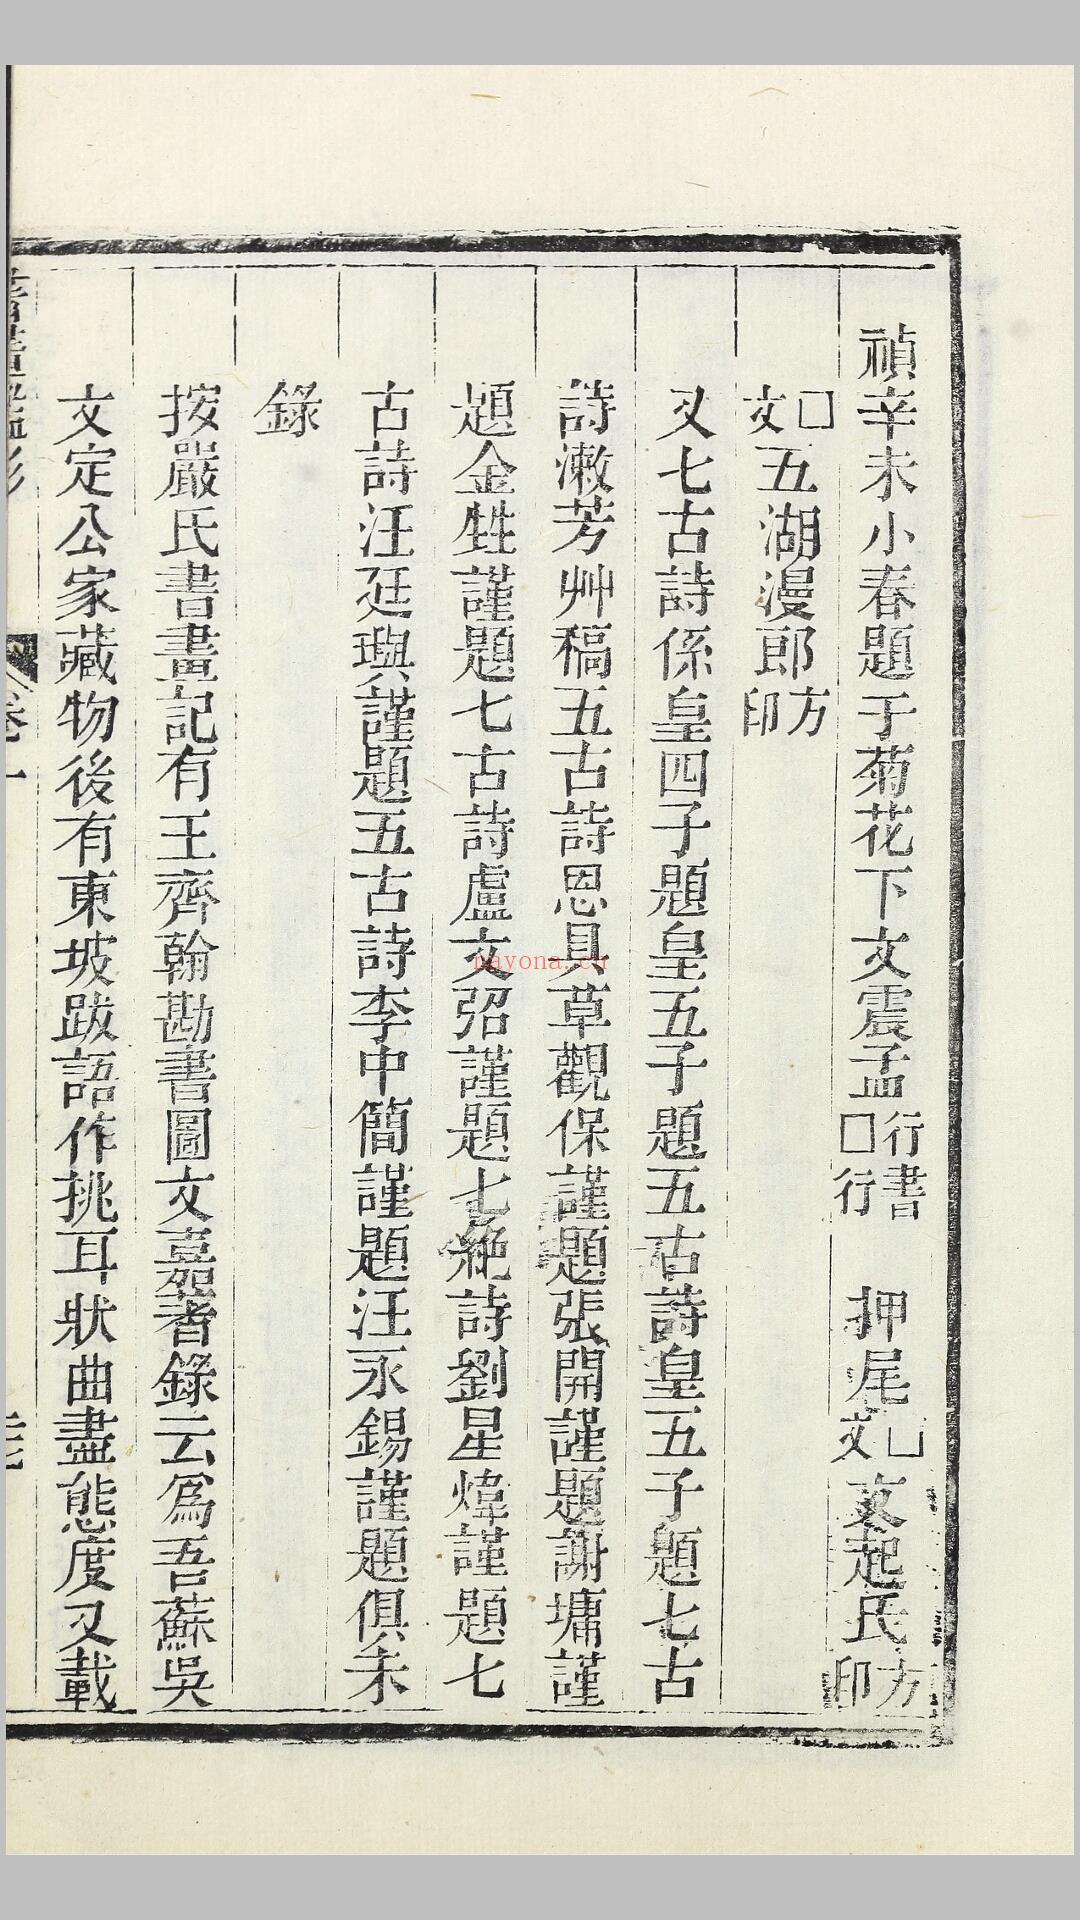 禎辛未小春題于菊花下文震孟行書□行 押尾□文文起氏方印
□文五湖漫郎方印
又七古詩係皇四子題皇五子題五古詩皇五子題七古
詩漱芳艸稿五古詩恩貝草觀保謹題張開謹題謝墉謹
題金甡謹題七古詩盧文弨謹題七絶詩劉星煒謹題七
古詩汪廷璵謹題五古詩李中簡謹題汪永錫謹題俱未
錄
按嚴氏書畫記有王齊翰勘書圖文嘉著錄云爲吾蘇吳
文定公家藏物後有東坡跋語作挑耳狀曲盡態度又載
卷一
nayona.cn